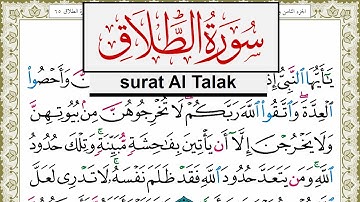 سُورَةُ الطَّلَاقِ
surat Al Talak
يَٰٓأَيُّهَا ٱلنَّبِىُّ إِذَا وَأَحْصُوا۟
ٱلْعِدَّةَ ۖ وَٱتَّقُوا۟ ٱللَّهَ رَبَّكُمْ ۖ لَا تُخْرِجُوهُنَّ مِنۢ بُيُوتِهِنَّ
وَلَا يَخْرُجْنَ إِلَّآ أَن يَأْتِينَ بِفَٰحِشَةٍ مُّبَيِّنَةٍ ۚ وَتِلْكَ حُدُودُ
ٱللَّهِ ۚ وَمَن يَتَعَدَّ حُدُودَ ٱللَّهِ فَقَدْ ظَلَمَ نَفْسَهُۥ ۚ لَا تَدْرِى لَعَلَّ